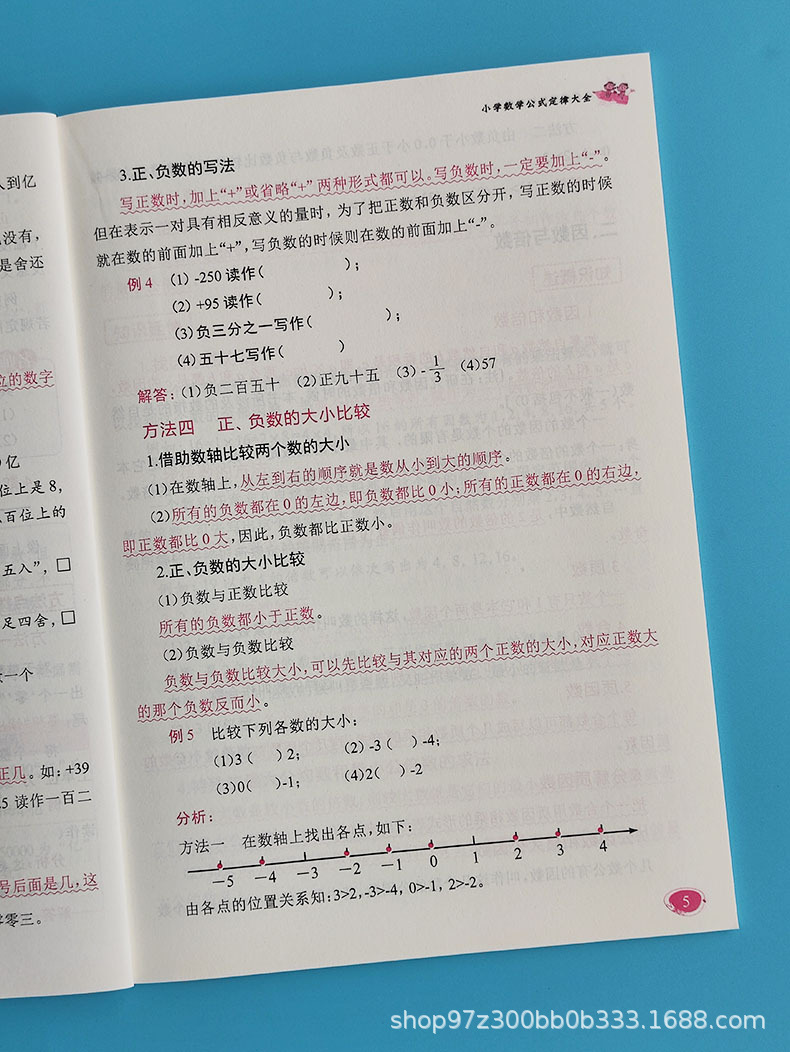 人到亿
没有，
是舍还
位的数字
亿
位上是8，
百位上的
五入”，□
足四舍，□
一个
正几。如：+39
5 读作一百二
号后面是几，这
零三。
小学数学公式定律大全
3.正、负数的写法
写正数时，加上“+”或省略“+”两种形式都可以。写负数时，一定要加上“-”。
但在表示一对具有相反意义的量时，为了把正数和负数区分开，写正数的时候
就在数的前面加上“+”，写负数的时候则在数的前面加上“-”。
例4 (1) -250 读作( );
(2) +95 读作( );
(3)负三分之一写作( );
(4)五十七写作( )
解答：(1)负二百五十 (2)正九十五 (3) -1/3 (4)57
方法四 正、负数的大小比较
1.借助数轴比较两个数的大小
(1)在数轴上，从左到右的顺序就是数从小到大的顺序。
(2)所有的负数都在0的左边，即负数都比0小；所有的正数都在0的右边，
即正数都比0大，因此，负数都比正数小。
2.正、负数的大小比较
(1)负数与正数比较
所有的负数都小于正数。
(2)负数与负数比较
负数与负数比较大小，可以先比较与其对应的两个正数的大小，对应正数大
的那个负数反而小。
例5 比较下列各数的大小：
(1)3( )2; (2) -3( )-4;
(3)0( )-1; (4)2( )-2
分析：
方法一 在数轴上找出各点，如下：
-5 -4 -3 -2 -1 0 1 2 3 4
由各点的位置关系知：3>2, -3>-4, 0>-1, 2>-2。
5
shop97z300bb0b333.1688.com